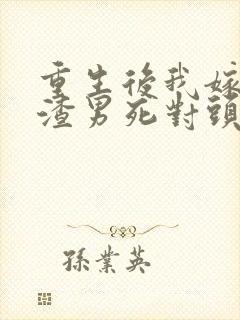 重生後我嫁
渣男死對頭
孫業英